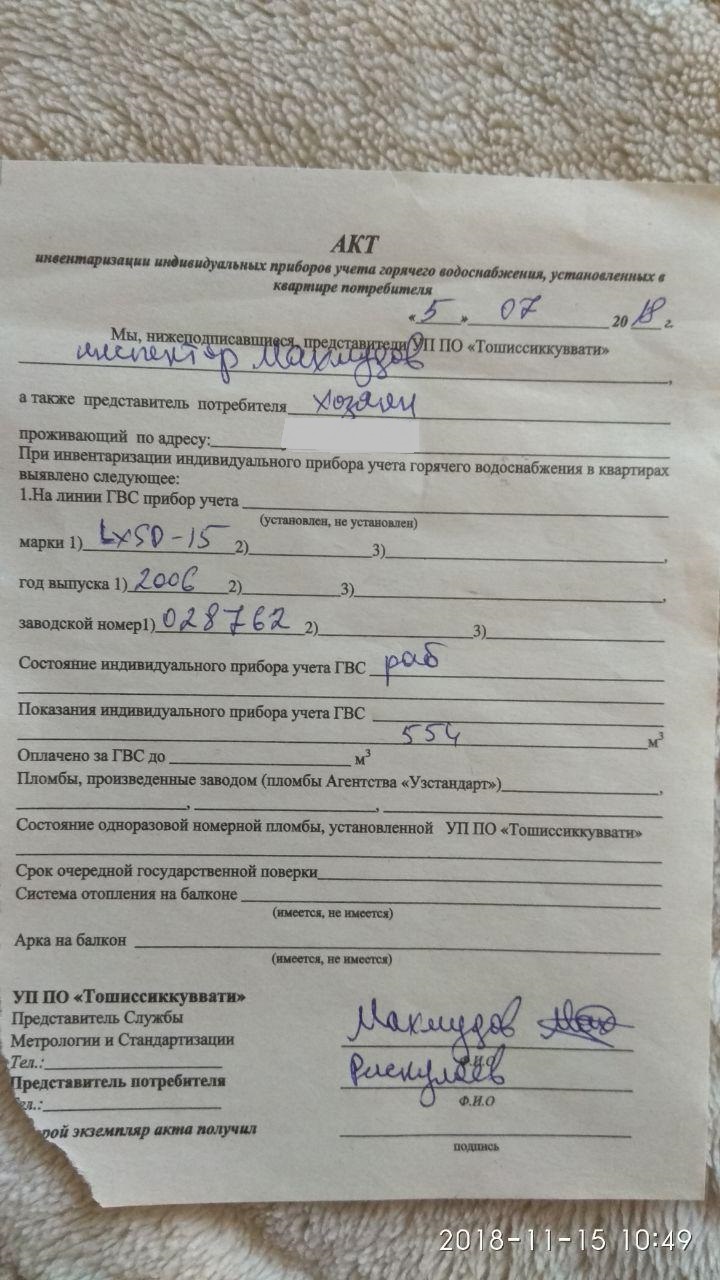 АКТ
инвентаризации индивидуальных приборов учета горячего водоснабжения, установленных в
квартире потребителя
«5» 07 2018 г.
Мы, нижеподписавщиеся, представители УП ПО «Тошиссиккуввати»
инспектор Махмудов,
а также представитель потребителя хозяин
проживающий по адресу:
При инвентаризации индивидуального прибора учета горячего водоснабжения в квартирах
выявлено следующее:
1.На линии ГВС прибор учета
(установлен, не установлен)
марки 1) LXSD-15 2) 3),
год выпуска 1) 2006 2) 3),
заводской номер1) 028762 2) 3)
Состояние индивидуального прибора учета ГВС раб
Показания индивидуального прибора учета ГВС
554 м³
Оплачено за ГВС до м³
Пломбы, произведенные заводом (пломбы Агентства «Узстандарт»),
, ,
Состояние одноразовой номерной пломбы, установленной УП ПО «Тошиссиккуввати»
Срок очередной государственной поверки
Система отопления на балконе
(имеется, не имеется)
Арка на балкон
(имеется, не имеется)
УП ПО «Тошиссиккуввати»
Представитель Службы
Метрологии и Стандартизации Махмудов
Тел.: Ф.И.О
Представитель потребителя Рискулбев
ел.: Ф.И.О
рой экземпляр акта получил
подпись
2018-11-15 10:49